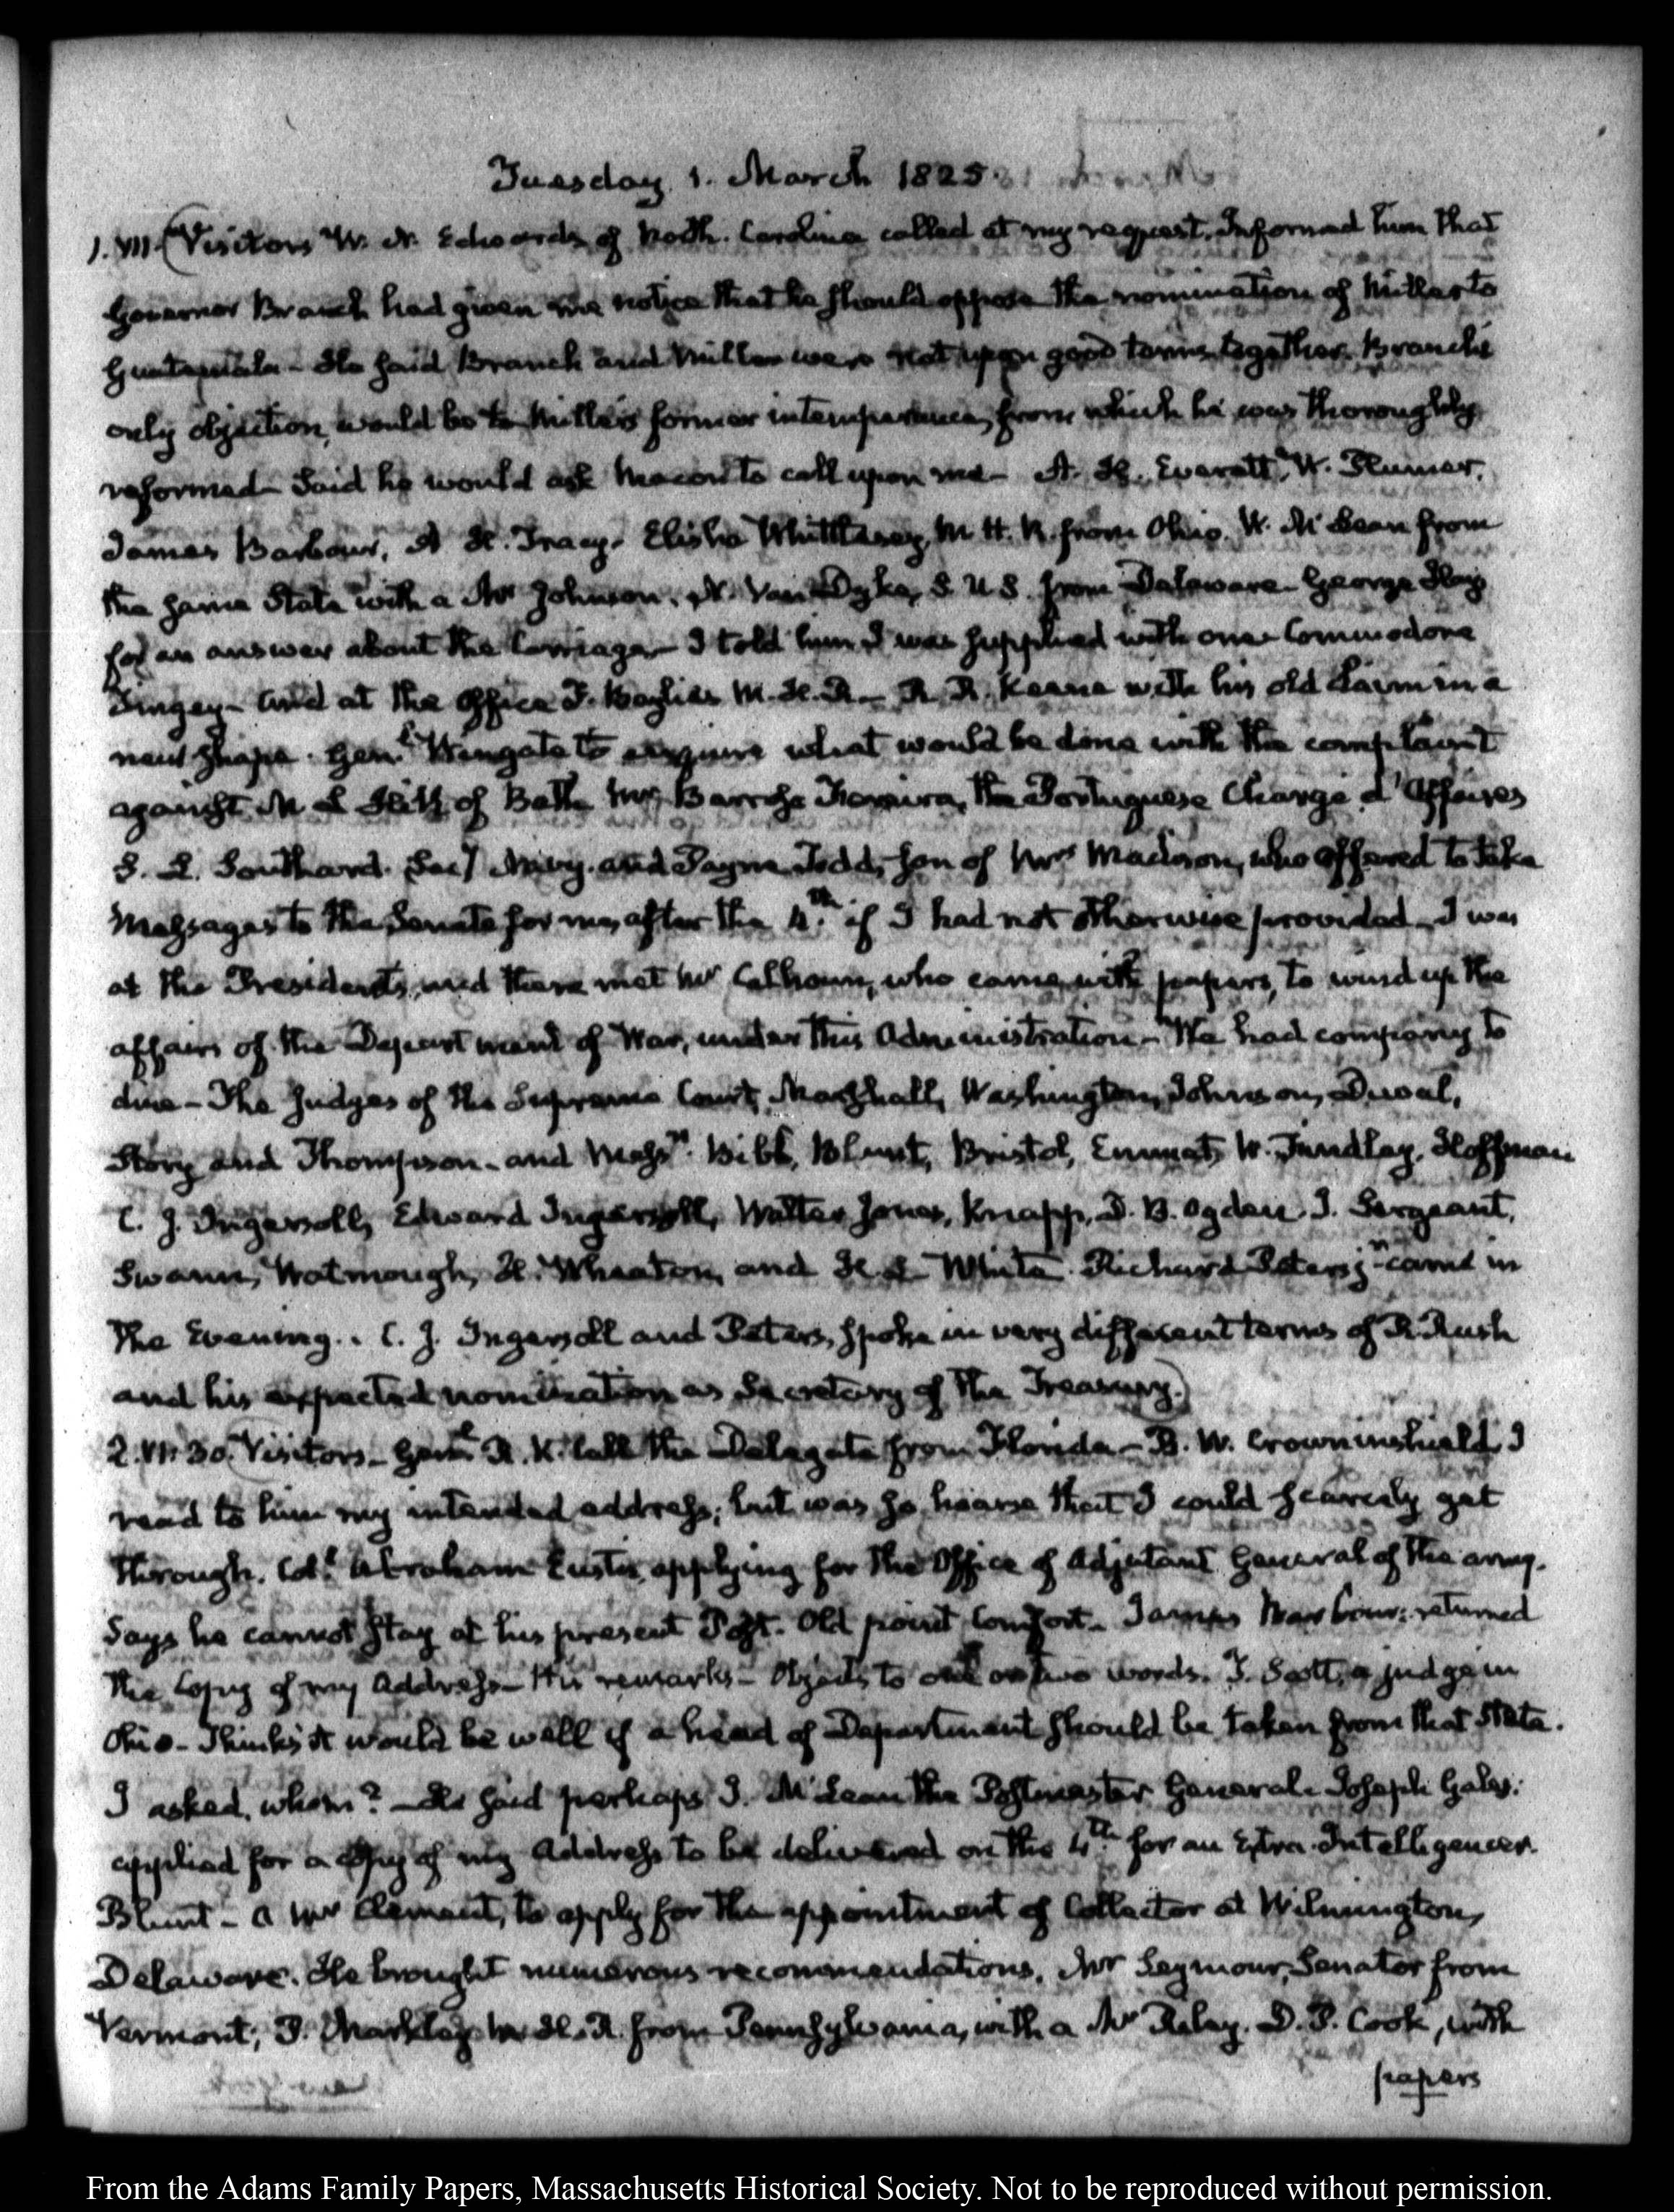 Tuesday 1. March 1825.
1. VII. (Visitors W. N. Edwards of North. Carolina called at my request. Informed him that
Governor Branch had given me notice that he should oppose the nomination of Miller to
Guatemala – He said Branch and Miller were not upon good terms together. Branch's
only objection, would be to Miller's former intemperance, from which he was thoroughly
reformed – Said he would ask Macon to call upon me – A. H. Everett, W. Plumer,
James Barbour, A H. Tracy. Elisha Whittlesey, M. H. R. from Ohio. W. McLean from
the same State with a Mr Johnson. N. Van Dyke, S. U S. from Delaware – George Hay
for an answer about the Carriage – I told him I was supplied with one – Commodore
Tingey – And at the Office F. Baylies M. H. R – R. R. Keene with his old claim in a
new shape. Genl. Wingate to enquire what would be done with the complaint
against M L Hill of Bath Mr Barrozo Pereira, the Portuguese Chargé d'Affaires
S. L. Southard. Secy Navy. and Payne Todd, son of Mrs Madison, who offered to take
Messages to the Senate for me, after the 4th. if I had not otherwise provided – I was
at the Presidents, and there met Mr Calhoun, who came with papers, to wind up the
affairs of the Department of War, under this Administration – We had company to
dine – The Judges of the Supreme Court, Marshall, Washington, Johnson, Duval,
Story and Thompson – and Messrs. Bibb, Blunt, Bristol, Emmet, W. Findlay, Hoffman
C. J. Ingersoll, Edward Ingersoll, Walter Jones, Knapp, D. B. Ogden. J. Sergeant,
Swann, Watmough, H. Wheaton, and H. L White. Richard Peters jr. came in
the Evening. . C. J. Ingersoll and Peters, spoke in very different terms of R. Rush
and his expected nomination as Secretary of the Treasury.)
2. VI. 30. (Visitors – Genl. R. K. Call the Delegate from Florida – B. W. Crowninshield. I
read to him my intended address; but was so hoarse that I could scarcely get
through. Coll. Abraham Eustis, applying for the Office of Adjutant General of the army.
Says he cannot stay at his present Post. Old point Comfort – James Barbour: returned
the Copy of my Address – His remarks – Objects to one or two words. T. Scott, a judge in
Ohio – Thinks it would be well if a head of Department should be taken from that State.
I asked, whom? – He said perhaps J. McLean the Postmaster General – Joseph Gales:
applied for a copy of my Address to be delivered on the 4th. for an Extra-Intelligencer.
Blunt – a Mr Clement, to apply for the appointment of Collector at Wilmington,
Delaware. He brought numerous recommendations. Mr Seymour, Senator from
Vermont, P. Markley M. H. R. from Pennsylvania, with a Mr Riley. D. P. Cook, with
papers
From the Adams Family Papers, Massachusetts Historical Society. Not to be reproduced without permission.